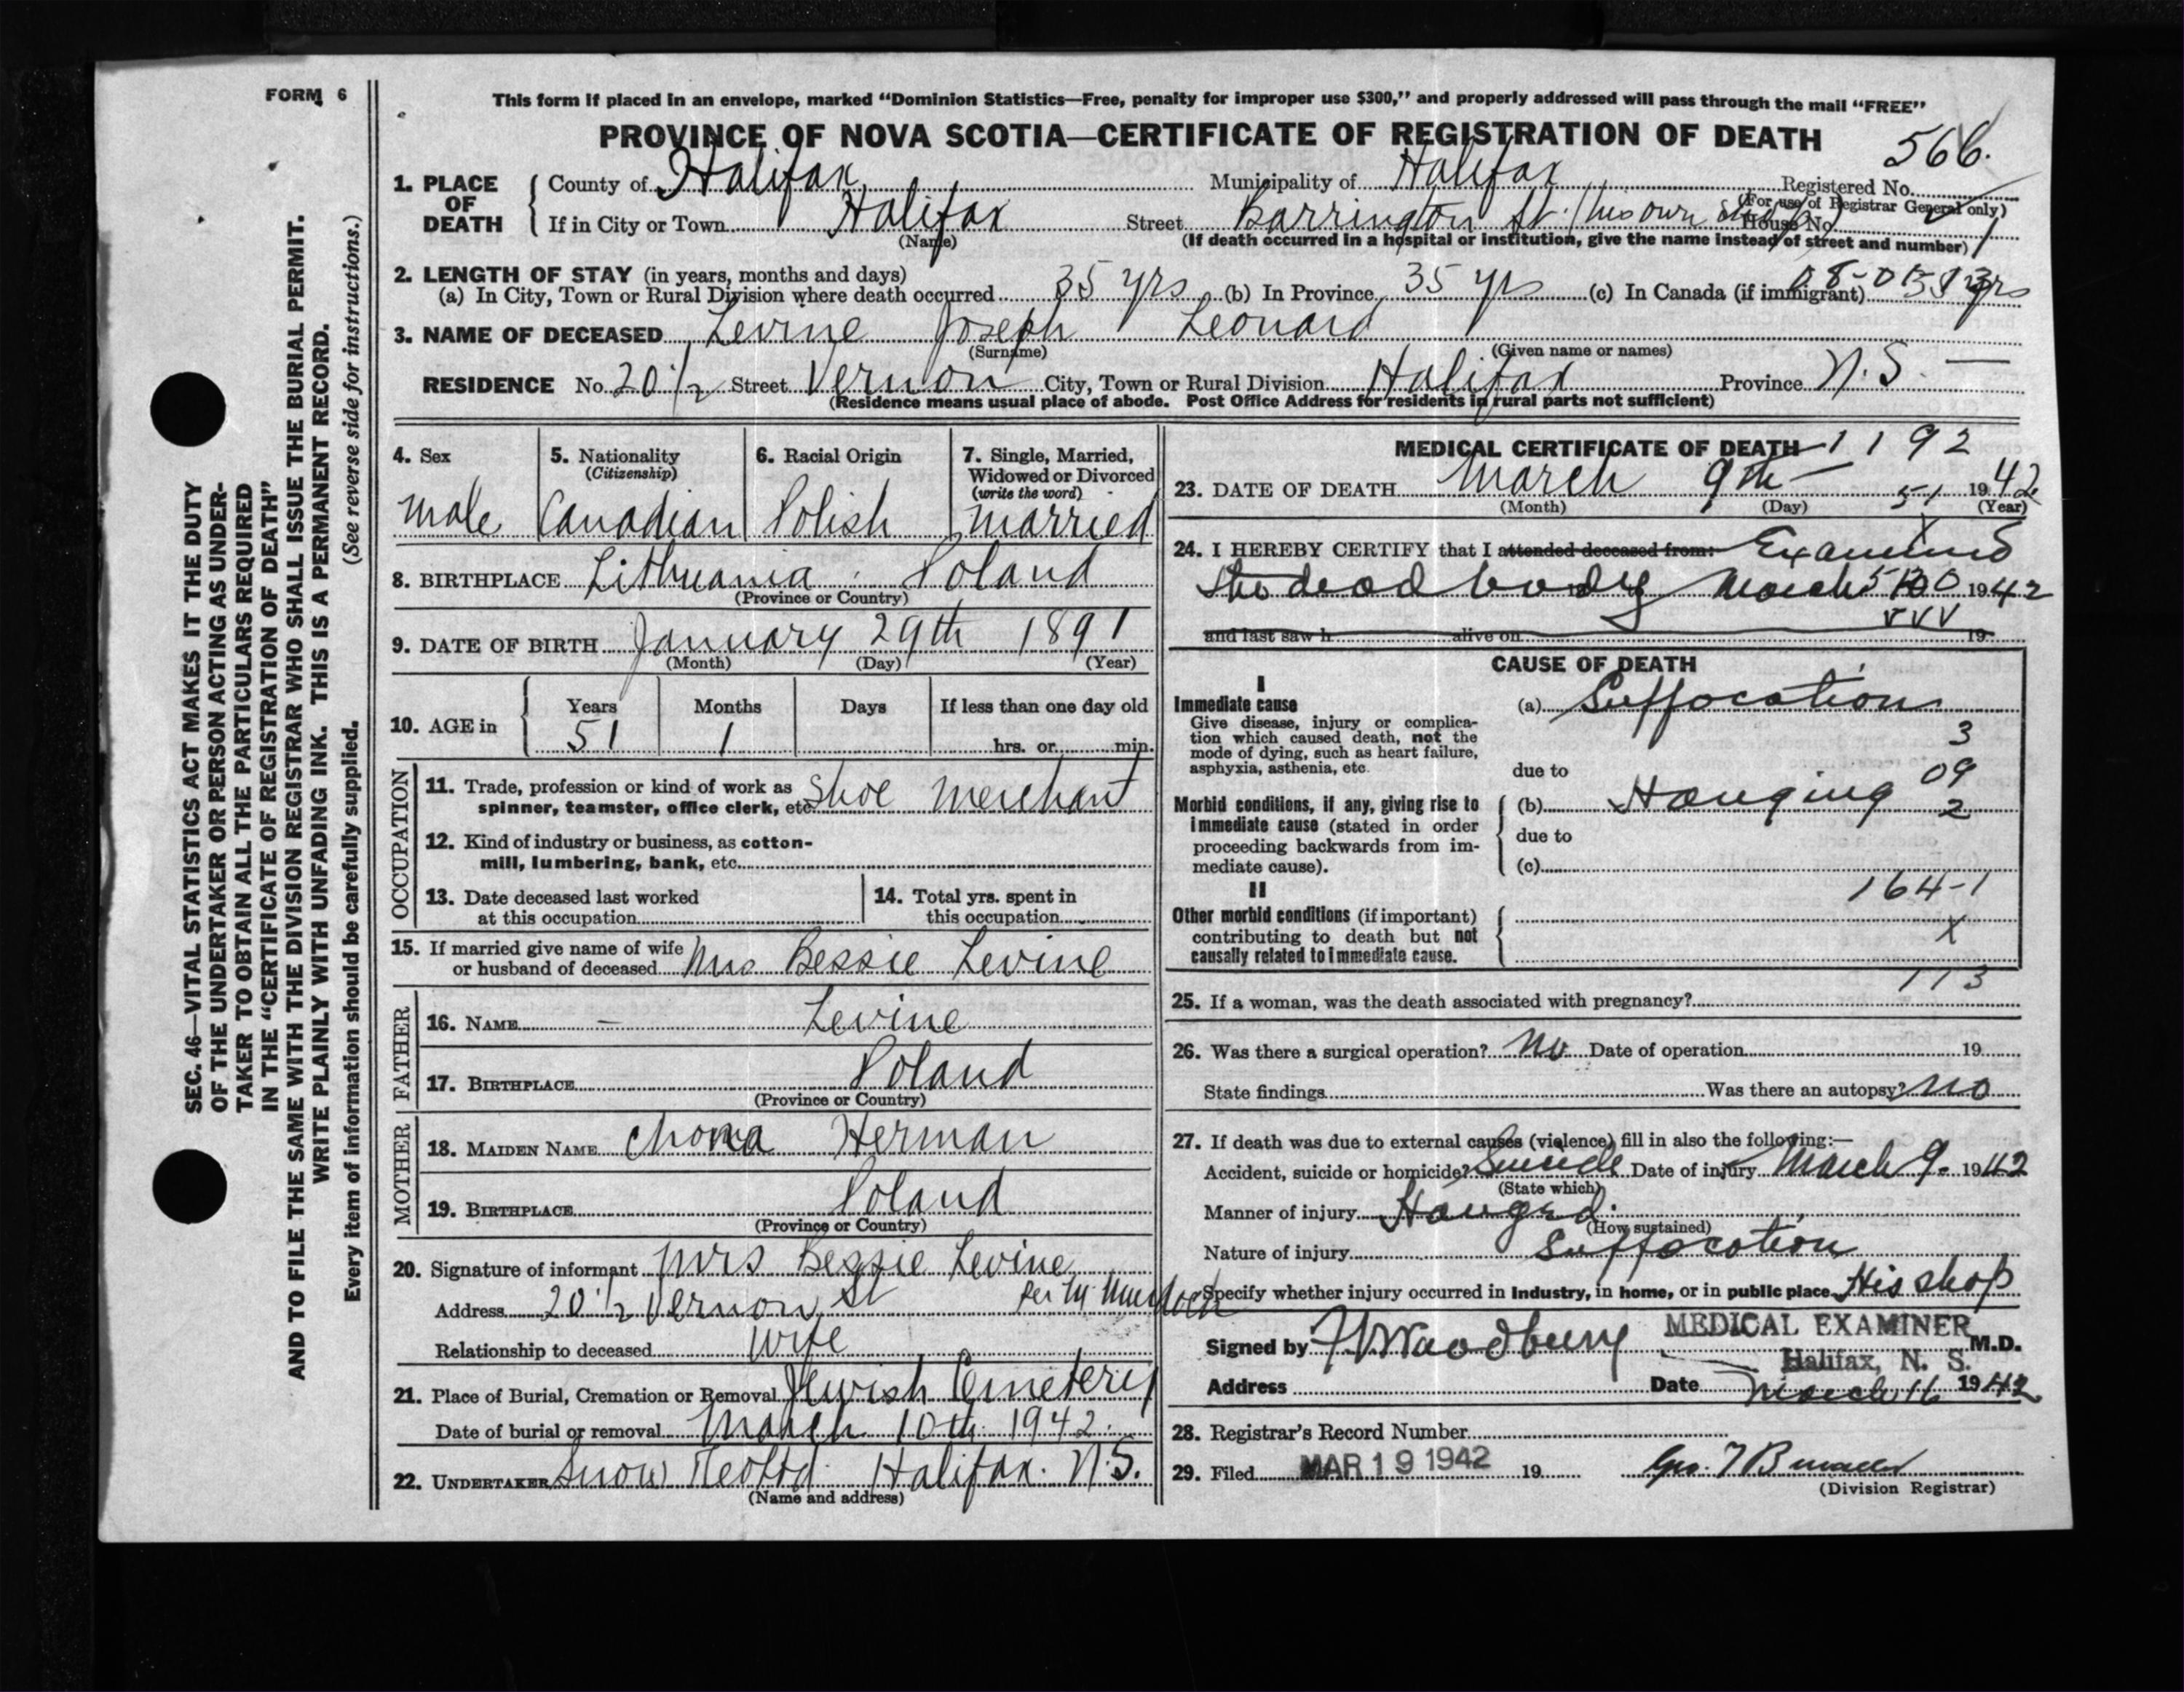 FORM 6
This form if placed in an envelope, marked “Dominion Statistics—Free, penalty for improper use $300,” and properly addressed will pass through the mail “FREE”
PROVINCE OF NOVA SCOTIA—CERTIFICATE OF REGISTRATION OF DEATH
566.
1. PLACE OF DEATH
County of Halifax Municipality of Halifax Registered No.
(For use of Registrar General only)
If in City or Town Halifax Street Barrington St. (his own shop) House No.
(Name) (If death occurred in a hospital or institution, give the name instead of street and number)
2. LENGTH OF STAY (in years, months and days)
(a) In City, Town or Rural Division where death occurred 35 yrs (b) In Province 35 yrs (c) In Canada (if immigrant) yrs
3. NAME OF DECEASED Levine Joseph Leonard
(Surname) (Given name or names)
RESIDENCE No. 20 1/2 Street Vernon City, Town or Rural Division Halifax Province N.S. —
(Residence means usual place of abode. Post Office Address for residents in rural parts not sufficient)
4. Sex
male
5. Nationality
(Citizenship)
Canadian
6. Racial Origin
Polish
7. Single, Married,
Widowed or Divorced
(write the word)
married
8. BIRTHPLACE Lithuania Poland
(Province or Country)
9. DATE OF BIRTH January 29th 1891
(Month) (Day) (Year)
10. AGE in
Years Months Days If less than one day old
51 1 hrs. or min.
OCCUPATION
11. Trade, profession or kind of work as
spinner, teamster, office clerk, etc. Shoe Merchant
12. Kind of industry or business, as cotton-
mill, lumbering, bank, etc.
13. Date deceased last worked
at this occupation
14. Total yrs. spent in
this occupation
15. If married give name of wife
or husband of deceased Mrs Bessie Levine
FATHER
16. NAME — Levine
17. BIRTHPLACE Poland
(Province or Country)
MOTHER
18. MAIDEN NAME Herman
19. BIRTHPLACE Poland
(Province or Country)
20. Signature of informant Mrs Bessie Levine
Address 20 1/2 Vernon St Per M
Relationship to deceased Wife
21. Place of Burial, Cremation or Removal Jewish Cemetery
Date of burial or removal March 10th 1942.
22. UNDERTAKER Snow Halifax. N.S.
(Name and address)
MEDICAL CERTIFICATE OF DEATH 1192
23. DATE OF DEATH March 9th 51 1942
(Month) (Day) (Year)
24. I HEREBY CERTIFY that I attended deceased from: Examined
the dead body March 1942
and last saw h alive on 19
CAUSE OF DEATH
I
Immediate cause
Give disease, injury or complica-
tion which caused death, not the
mode of dying, such as heart failure,
asphyxia, asthenia, etc.
(a) Suffocation
3
due to
09
Morbid conditions, if any, giving rise to
immediate cause (stated in order
proceeding backwards from im-
mediate cause).
(b) Hanging 2
due to
(c)
II
164-1
Other morbid conditions (if important)
contributing to death but not
causally related to immediate cause.
X
113
25. If a woman, was the death associated with pregnancy?
26. Was there a surgical operation? No Date of operation 19
State findings Was there an autopsy? No
27. If death was due to external causes (violence) fill in also the following:—
Accident, suicide or homicide? Suicide Date of injury March 9. 1942
(State which)
Manner of injury Hanged.
(How sustained)
Nature of injury Suffocation
Specify whether injury occurred in Industry, in home, or in public place His shop
Signed by Woodbury MEDICAL EXAMINER M.D.
Halifax, N. S.
Address Date March 16 1942
28. Registrar's Record Number
29. Filed MAR 19 1942 19
(Division Registrar)
SEC. 46—VITAL STATISTICS ACT MAKES IT THE DUTY
OF THE UNDERTAKER OR PERSON ACTING AS UNDER-
TAKER TO OBTAIN ALL THE PARTICULARS REQUIRED
IN THE “CERTIFICATE OF REGISTRATION OF DEATH”
AND TO FILE THE SAME WITH THE DIVISION REGISTRAR WHO SHALL ISSUE THE BURIAL PERMIT.
WRITE PLAINLY WITH UNFADING INK. THIS IS A PERMANENT RECORD.
Every item of information should be carefully supplied. (See reverse side for instructions.)